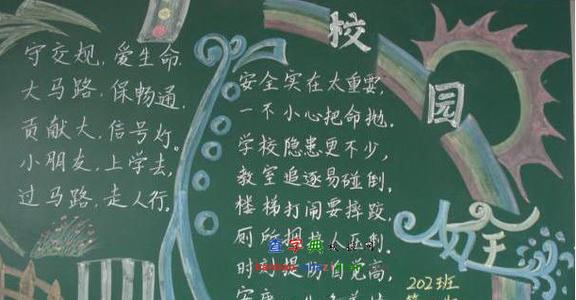 守交规,爱生命.
大马路,保畅通,
贡献大,信号灯。
小朋友,上学去,
过马路,走人行。
校园
安全
安全实在太重要,
一不小心把命抛.
学校隐患更不少,
教室追逐易碰倒.
楼梯打闹要摔跤,
厕所拥挤人
时刻提 自觉高,
查字典
202班